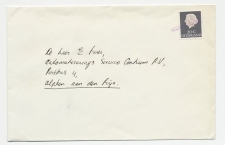 De Heer E. Fuer,
Automatiserings Service Centrum N.V.,
Postbus 4,
Alphen aan den Rijn.